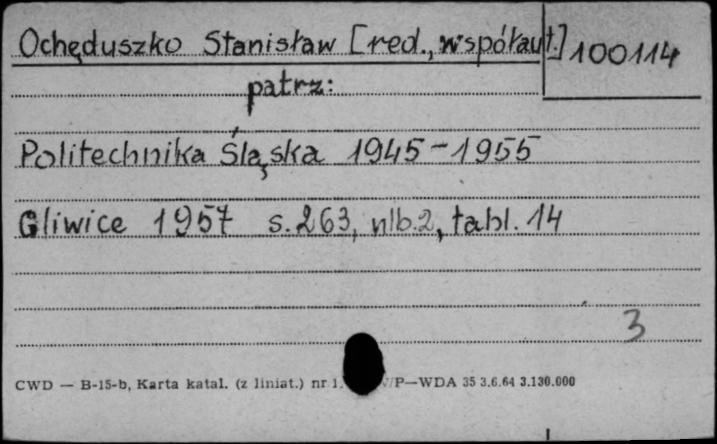 Ochęduszko Stanisław [red., współaut.] 100114
patrz:
Politechnika Śląska 1945-1955
Gliwice 1957 s.263, nlb.2, tabl. 14
3
CWD — B-15-b, Karta katal. (z liniat.) nr 1, /P—WDA 35 3.6.64 3.130.000